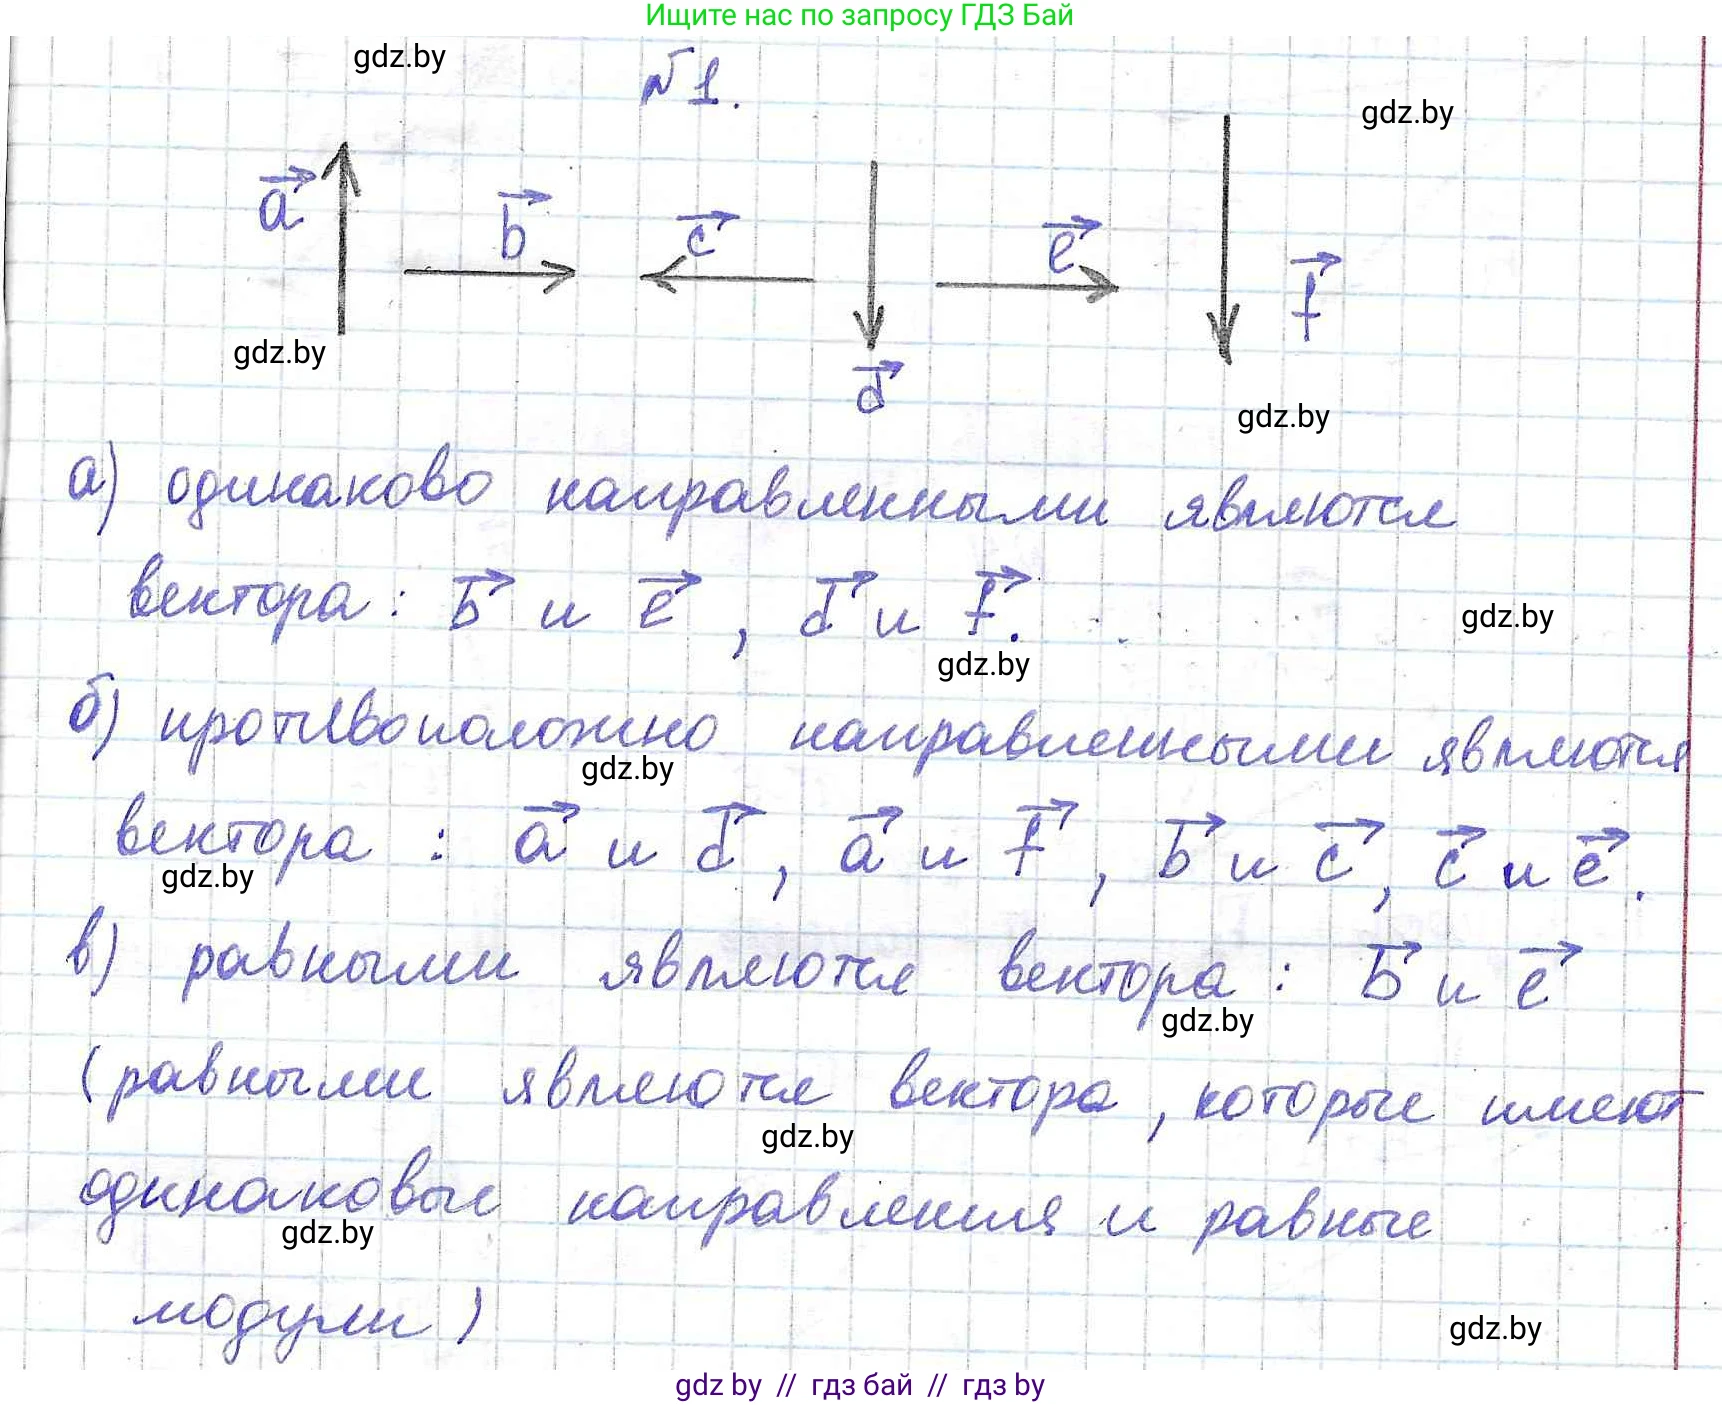 Ищите нас по запросу ГДЗ Бай
gdz.by
№1.
gdz.by
a⃗
b⃗
c⃗
e⃗
f⃗
gdz.by
d⃗
gdz.by
а) одинаково направленными являются
вектора: b⃗ и e⃗, d⃗ и f⃗.
gdz.by
gdz.by
б) противоположно направленными являются
gdz.by
вектора: a⃗ и d⃗, a⃗ и f⃗, b⃗ и c⃗, c⃗ и e⃗.
gdz.by
в) равными являются вектора: b⃗ и e⃗
gdz.by
(равными являются вектора, которые имеют
gdz.by
одинаковые направления и равные
gdz.by
модули)
gdz.by
gdz by // гдз бай // гдз by